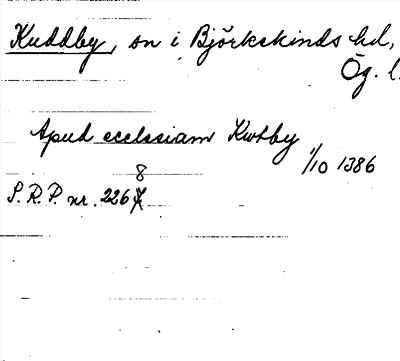 Kuddby, sn i Björkekinds hd,
Ög. l.
Apud ecclesiam Kutby
1/10 1386
8
S.R.P. nr. 2267